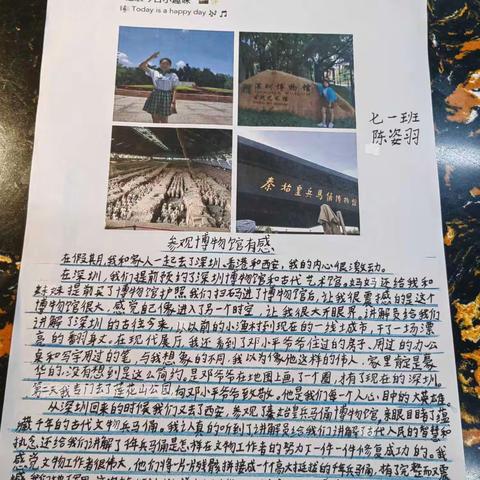 Today is a happy day 🎶🎵
深圳博物馆
古代艺术馆
秦始皇兵马俑博物馆
七一班
陈姿羽
参观博物馆有感
在假期,我和家人一起去了深圳、香港和西安,我的内心很激动。
在深圳,我们提前预约了深圳博物馆和古代艺术馆。妈妈还给我和
妹妹提前买了博物馆护照,我们扫码进了博物馆后,让我很震撼的是这个
博物馆很大,感觉自己像进入了另一个时空,让我很大开眼界,讲解员给我们
讲解了深圳的古往今来,从以前的小渔村到现在的一线土城市,打了一场漂
亮的翻身又。在现代展厅,我还看到了邓小平爷爷住过的房子,用过的办公
桌和写字用过的笔,与我想象的不同,我以为像他这样的伟人,家里前定是豪
华的,没有想到是这么简约,是邓爷爷在地图上画了一个圈,才有了现在的深圳。
第二天我专门去了莲花山公园,向邓小平爷爷致敬。他是我们每个人心目中的大英雄。
从深圳回来的时候我们又去了西安,参观了秦始皇兵马俑博物馆,亲眼目睹了蕴
藏千年的古代文物兵马俑。我认真的听到了讲解员给我们讲解了古代人民的智慧和
执念,还给我们讲解了千年兵马俑是怎样在文物工作者的努力了一件一件修复成功的。我
感觉文物工作者很伟大,他们将一片一片残骸拼接成一个高大挺拔的千年兵马俑,有了完整而又震